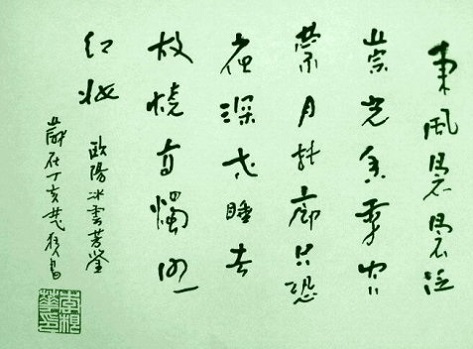 東風裊裊泛
崇光香霧空
蒙月轉廊只恐
夜深花睡去
故燒高燭照
紅妝
歐陽冰雲芳
歲在丁亥楚狂書